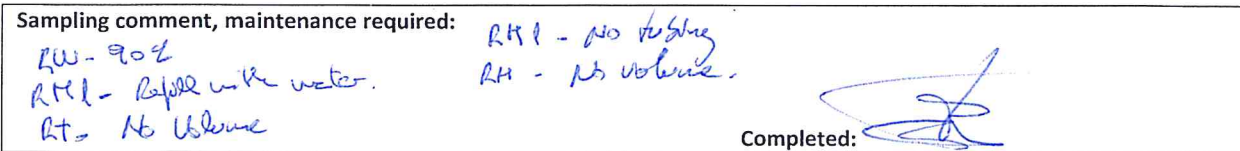 Sampling comment, maintenance required:
RW - 90%
RM1 - Refill with water.
RT - No Volume
RM1 - No tubing
RH - No volume.
Completed: